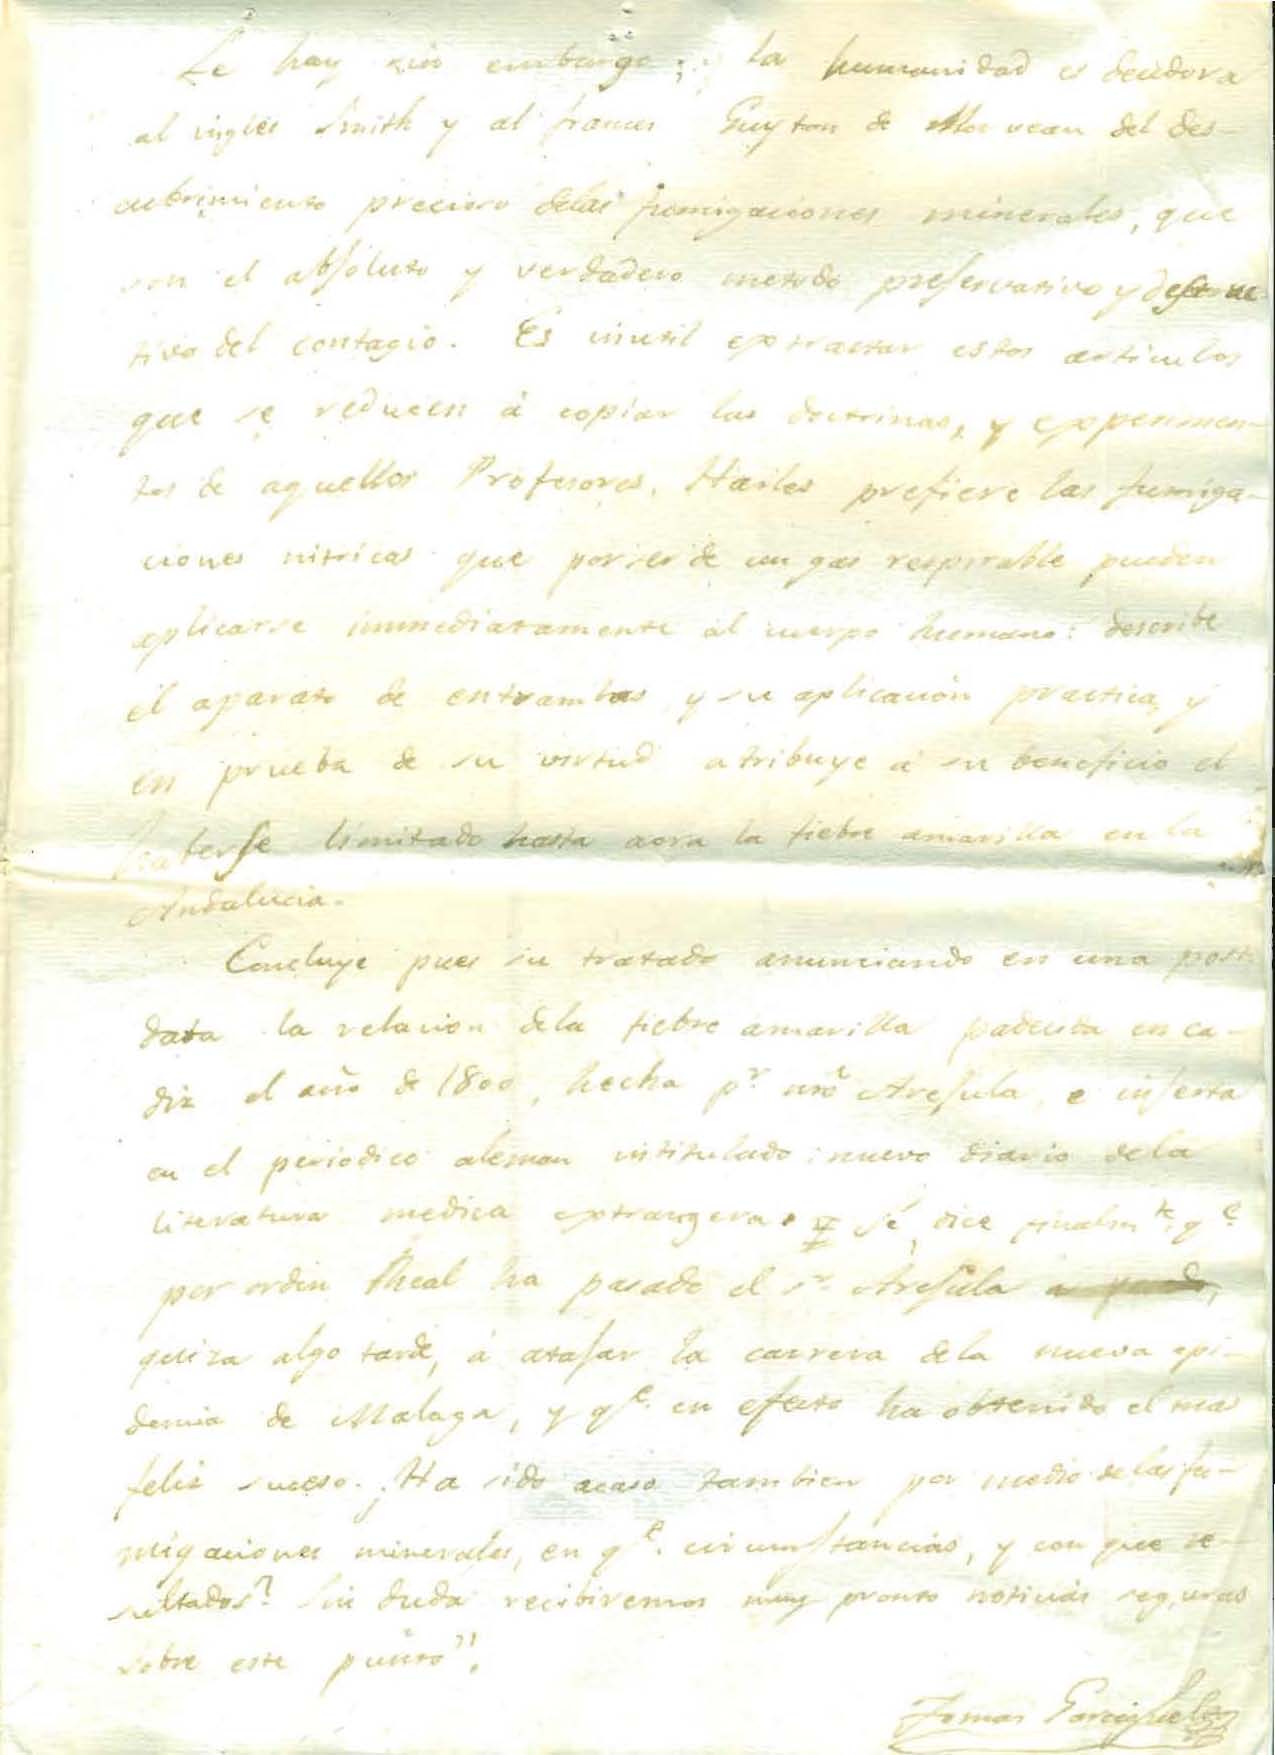 Le hay sin embargo; la humanidad es deudora
al ingles Smith y al frances Guyton de Morveau del des-
cubrimiento precioso delas fumigaciones minerales, que
son el absoluto y verdadero metodo preservativo y destruc-
tivo del contagio. Es inutil extractar estos articulos
que se reducen á copiar las doctrinas, y experimen-
tos de aquellos Profesores. Harles prefiere las fumiga-
ciones nitricas que por ser de un gas respirable pueden
aplicarse immediatamente al cuerpo humano: describe
el aparato de entrambas, y su aplicación practica, y
en prueba de su virtud atribuye á su beneficio el
haberse limitado hasta aora la fiebre amarilla en la
Andalucia.
Concluye pues su tratado anunciando en una post
data la relacion dela fiebre amarilla padecida en Ca-
diz el año de 1800, hecha pr. nro Arejula, e inserta
en el periodico aleman intitulado: nuevo diario dela
literatura medica extrangera. Sé, dice finalmte. qe.
por orden Rheal ha pasado el Sr. Arejula
quiza algo tarde, á atajar la carrera dela nueva epi-
demia de Malaga, y qe. en efecto ha obtenido el mas
feliz suceso. ¿Ha sido acaso tambien por medio delas fu-
migaciones minerales, en qe. circunstancias, y con que re-
sultados? Sin duda recibiremos muy pronto noticias seguras
sobre este punto".
Tomas Garcia